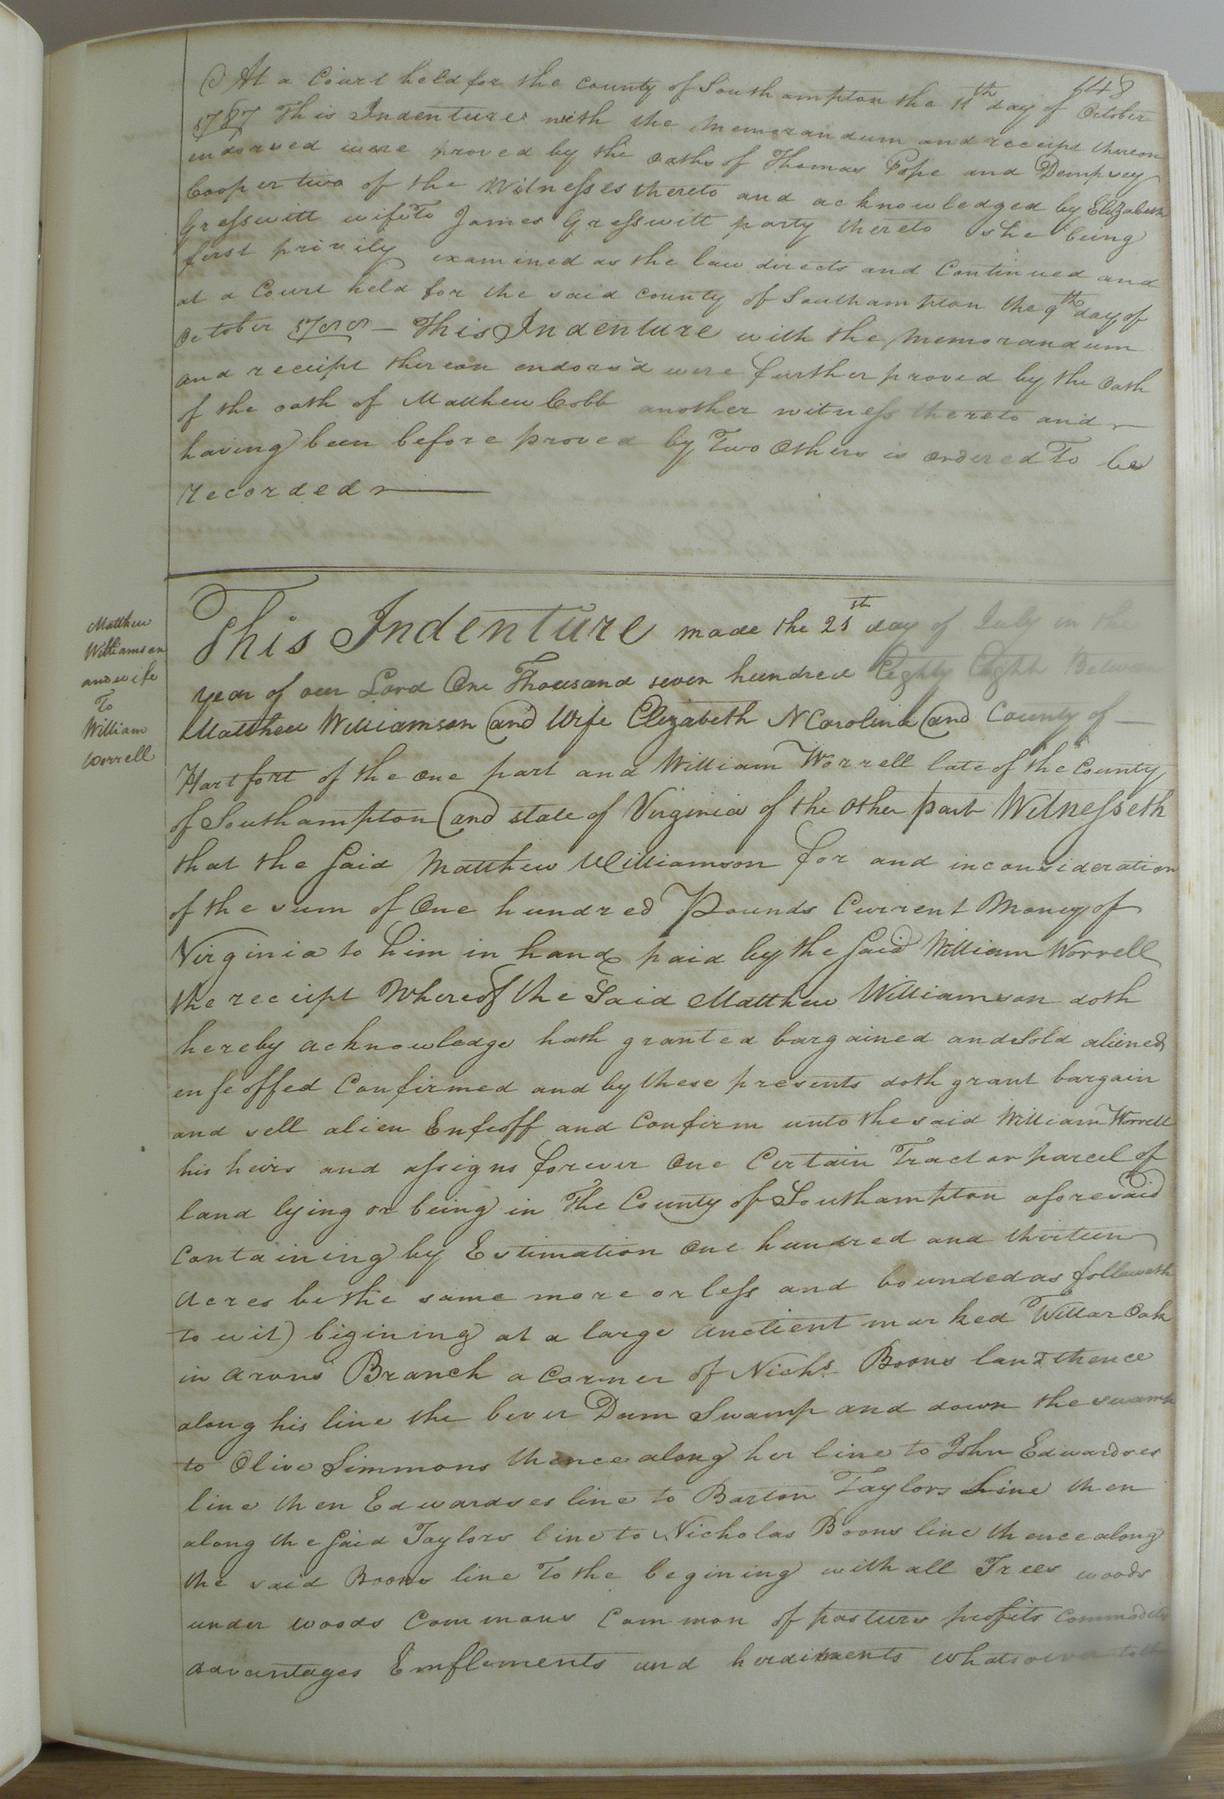 648
At a Court held for the county of Southampton the 11th day of October
1787 This Indenture with the Memorandum and receipt thereon
endorsed were proved by the oaths of Thomas Pope and Dempsey
Cooper two of the Witnesses thereto and acknowledged by Elizabeth
Gresswitt wife To James Gresswitt party thereto she being
first privily examined as the law directs and Continued and
at a Court held for the said county of Southampton the 9th day of
October 1788 — This Indenture with the Memorandum
and receipt thereon endors'd were further proved by the Oath
of the oath of Matthew Cobb another witness thereto and
having been before proved by Two Others is ordered To be
recorded
Matthew
Williamson
and wife
To
William
Worrell
This Indenture made the 21st day of July in the
year of our Lord One Thousand seven hundred Eighty Eight Between
Matthew Williamson and Wife Elizabeth N Carolina and County of —
Hartfort of the one part and William Worrell late of the County
of Southampton and state of Virginia of the Other part Witnesseth
that the said Matthew Williamson for and in consideration
of the sum of One hundred Pounds Current Money of
Virginia to him in hand paid by the said William Worrell
the receipt Whereof the Said Matthew Williamson doth
hereby acknowledge hath granted bargained and Sold aliened
enfeoffed Confirmed and by these presents doth grant bargain
and sell alien Enfeoff and Confirm unto the said William Worrell
his heirs and assigns forever One Certain Tract or parcel of
land lying or being in The County of Southampton aforesaid
Containing by Estimation One hundred and thirteen
Acres be the same more or less and bounded as followeth
to wit) bigining at a large Anctient marked Willar Oak
in Arons Branch a Corner of Nichs. Boons land thence
along his line the bever Dam Swamp and down the swamp
to Olive Simmons thence along her line to John Edwardses
line then Edwardses line to Barton Taylors Line then
along the said Taylors line to Nicholas Boons line thence along
the said Boons line To the begining with all Trees woods
under woods Commons Common of pasture profits Commodities
advantages Emflements and herdiments whatsoever to the